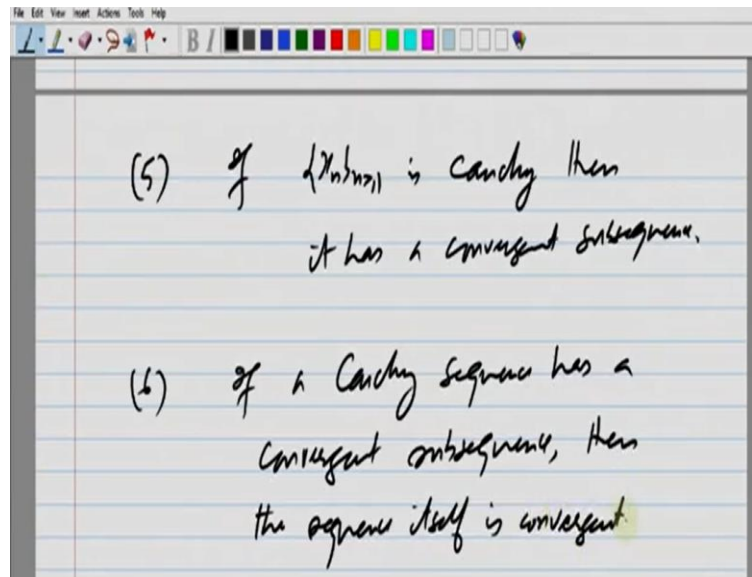 File Edit View Insert Actions Tools Help
B I
(5) If {xₙ}ₙ≥₁ is Cauchy then
it has a convergent subsequence.
(6) If a Cauchy sequence has a
convergent subsequence, then
the sequence itself is convergent.